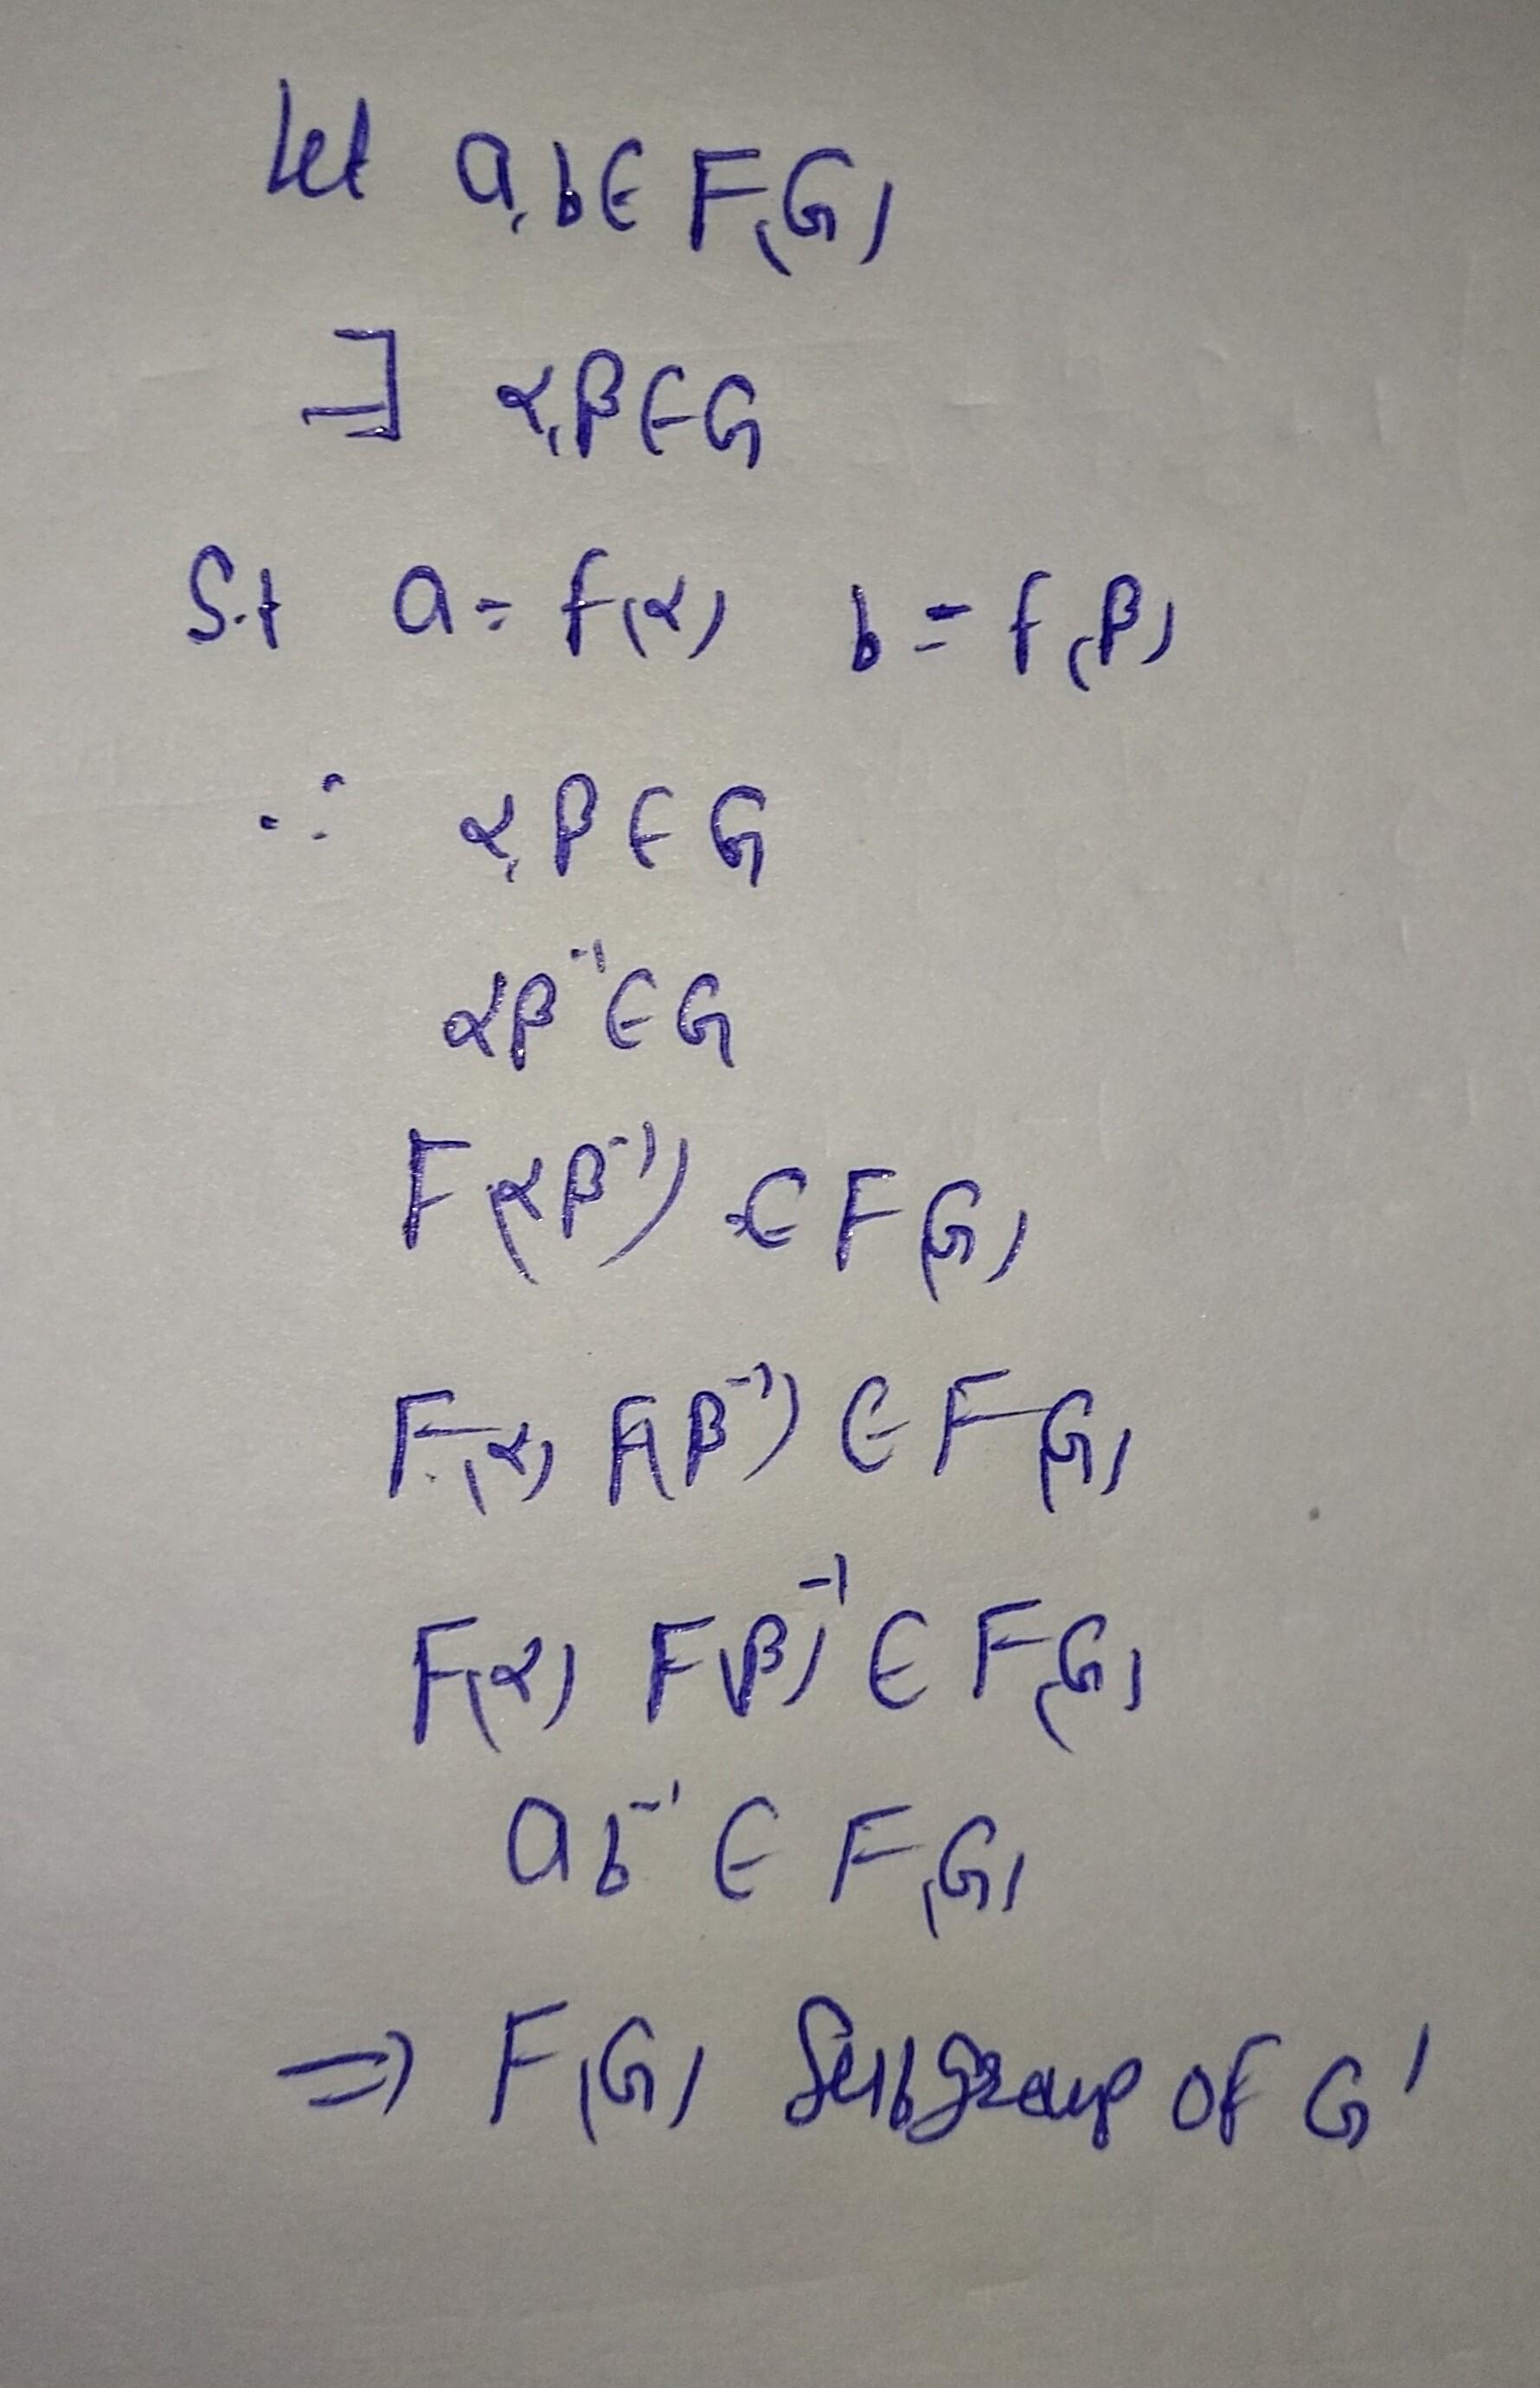 Let a, b ∈ F(G)
∃ α, β ∈ G
S.t a = f(α) b = f(β)
∵ α, β ∈ G
αβ⁻¹ ∈ G
F(αβ⁻¹) ∈ F(G)
F(α) F(β⁻¹) ∈ F(G)
F(α) F(β)⁻¹ ∈ F(G)
ab⁻¹ ∈ F(G)
⇒ F(G) Subgroup of G'